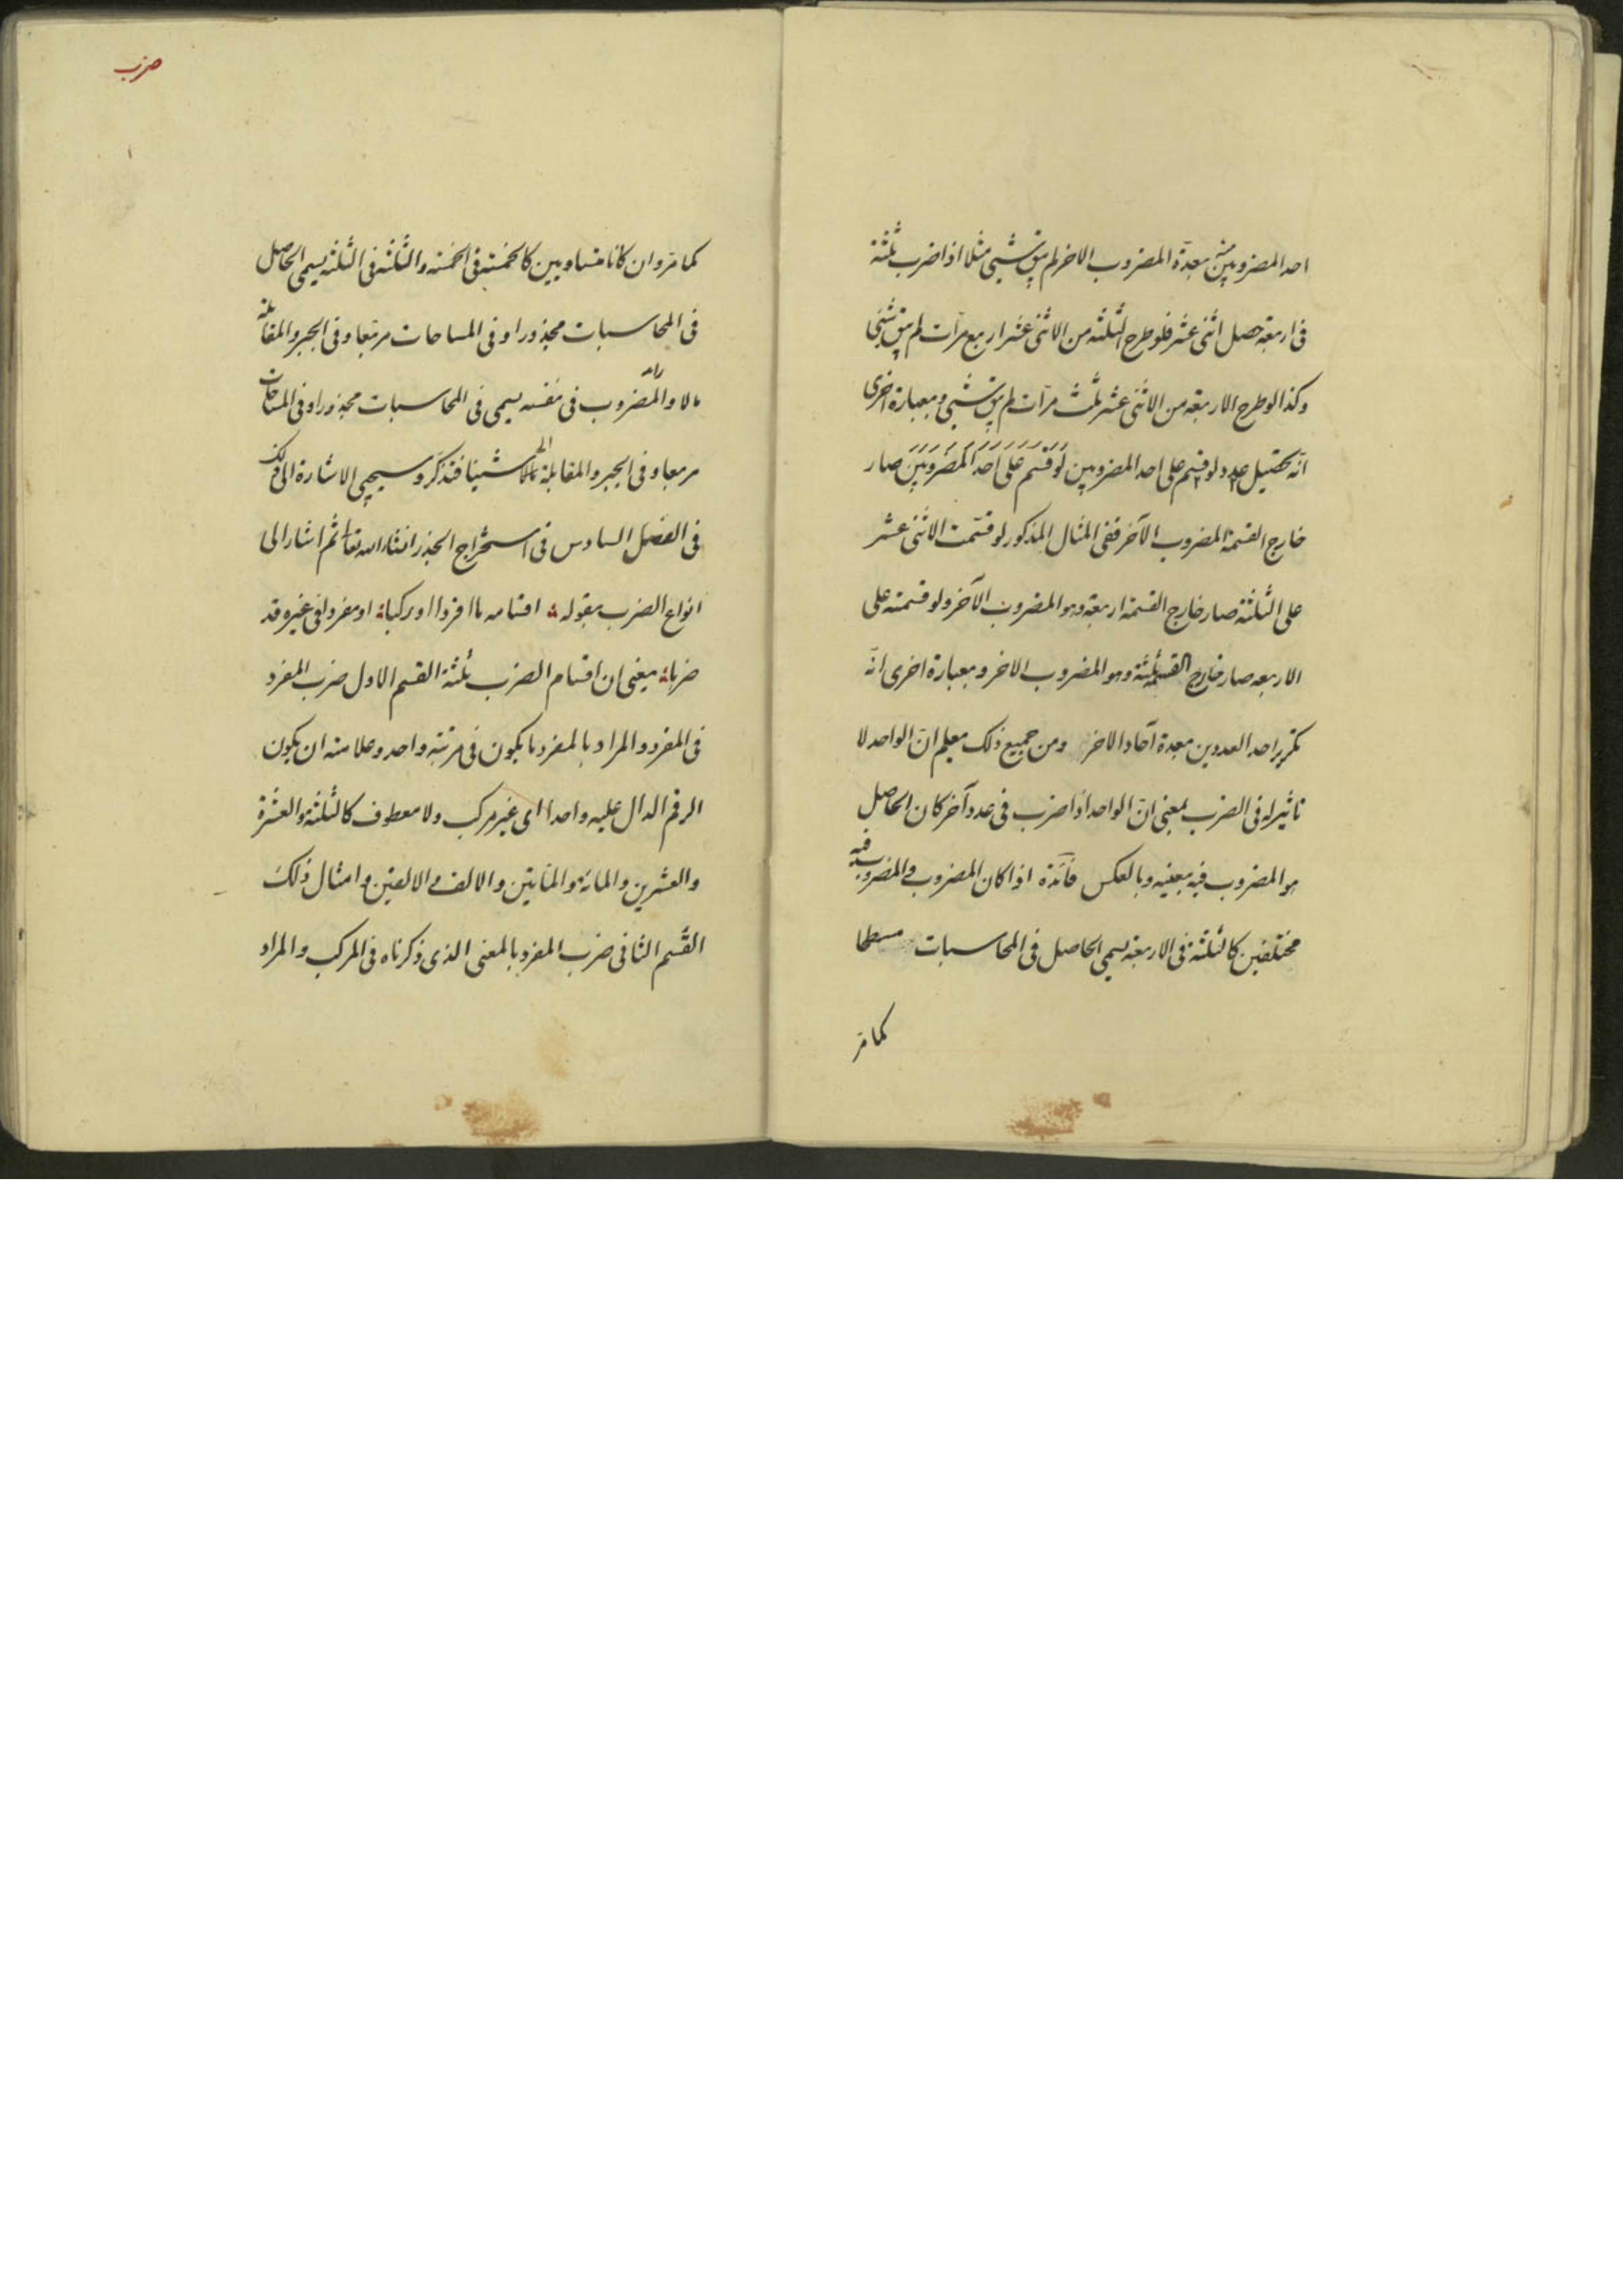 احد المضروبین منه بعدة المضروب الاخر لم یبق شیئ مثلا اذا ضرب ثلثة
فی اربعة حصل اثنی عشر فلو طرح الثلثة من الاثنی عشر اربع مرّات لم یبق شیئ
وکذا لو طرح الاربعة من الاثنی عشر ثلث مرّات لم یبق شیئ وبعبارة اخری
انّه تحصیل عدد لو قسم علی احد المضروبین لو قسم علی احد المضروبین صار
خارج القسمة المضروب الآخر ففی المثال المذکور لو قسّمت الاثنی عشر
علی الثلثة صار خارج القسمة اربعة وهو المضروب الآخر ولو قسمته علی
الاربعه صار خارج القسمة ثلثة وهو المضروب الاخر وبعبارة اخری انّه
تکریر احد العددین بعدة آحاد الاخر ومن جمیع ذلک یعلم انّ الواحد لا
تاثیر له فی الضرب بمعنی انّ الواحد اذا ضرب فی عدد آخر کان الحاصل
هو المضروب فیه بعینه وبالعکس فائدة اذا کان المضروب والمضروب فیه
مختلفین کالثلثة فی الاربعة یسمی الحاصل فی المحاسبات مسطحا
کما مرّ
ضرب
کما مرّ وان کانا متساویین کالخمسة فی الخمسة والثلثة فی الثلثة یسمی الحاصل
فی المحاسبات مجذورا وفی المساحات مربّعا وفی الجبر والمقابلة
مالا والمضروب فی نفسه یسمی فی المحاسبات مجذورا وفی المساحات
مربعا وفی الجبر والمقابلة شیئا فتذکر وسیجیئ الاشارة الی ذلک
فی الفصل السادس فی استخراج الجذر انشاء الله تعا ثم اشار الی
انواع الضرب بقوله اقسامه ما افردا او رکبا او مفردا فی غیره قد
ضربا یعنی ان اقسام الضرب ثلثة القسم الاول ضرب المفرد
فی المفرد والمراد بالمفرد ما یکون فی مرتبة واحد وعلامته ان یکون
الرقم الدال علیه واحدا ای غیر مرکب ولا معطوف کالثلثة والعشرة
والعشرین والمائة والمأیتین والالف والالفین وامثال ذلک
القسم الثانی ضرب المفرد بالمعنی الذی ذکرناه فی المرکب والمراد